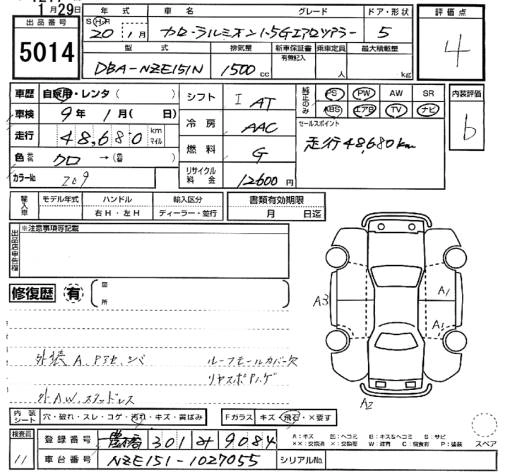 1月29日
出品番号 5014
年式 車名 グレード ドア・形状 評価点
S H R 20 1月 カローラルミオン1.5Gエアロツアラー 5 4
型式 排気量 新車保証書 有無記入 乗車定員 最大積載量
DBA-NZE151N 1500cc 人 kg
車歴 自家用・レンタ シフト I AT 純正のみ PS PW AW SR 内装評価
車検 9年1月(日) ABS エアB TV ナビ b
走行 48,680 km マイル 冷房 AAC セールスポイント
走行48,680km
色 クロ →( ) 燃料 G
カラーNo 209 リサイクル料金 12600円
輸入車 モデル年式 ハンドル 輸入区分 書類有効期限
右H・左H ディーラー・並行 月 日迄
出品店申告欄 ※注意事項等記載
修復歴 有 箇所
A3 A1 A1 A2
外装A,P
ルーフモールカバー欠
外A.W.スタッドレス
内装シート 穴・破れ・スレ・コゲ・汚れ・キズ・黄ばみ Fガラス キズ・飛石・×要す
A:キズ U:ヘコミ B:キズ&ヘコミ S:サビ
検査員 11 登録番号 豊橋 301 9084
スペア
車台番号 NZE151-1027055 シリアルNo.